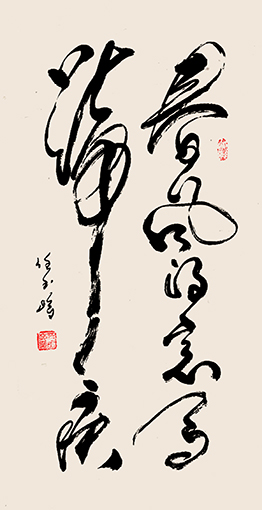 春風得意馬
蹄疾